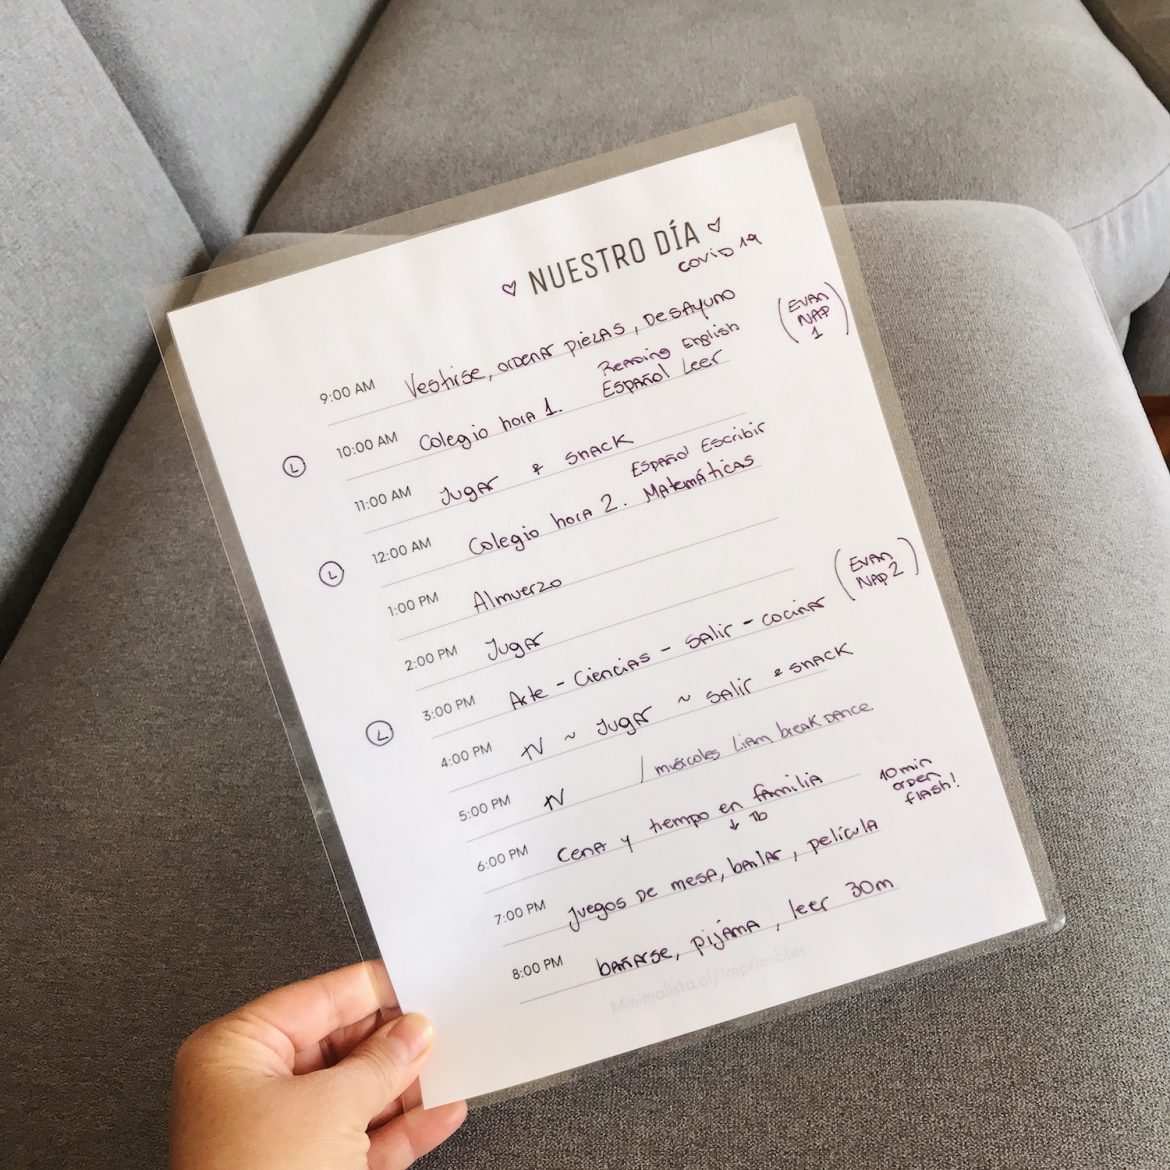 ♡ NUESTRO DÍA ♡
COVID 19
9:00 AM Vestirse, ordenar piezas, desayuno
(EVAN NAP 1)
Reading English
L 10:00 AM Colegio hora 1. Español Leer
11:00 AM Jugar & snack
Español Escribir
L 12:00 AM Colegio hora 2. Matemáticas
1:00 PM Almuerzo
2:00 PM Jugar
(EVAN NAP 2)
L 3:00 PM Arte - Ciencias - salir - cocinar
4:00 PM TV ~ Jugar ~ salir & snack
5:00 PM TV / miércoles Liam break dance
6:00 PM Cena y tiempo en familia
10 min orden flash!
↓
7:00 PM Juegos de mesa, bailar, película
8:00 PM bañarse, pijama, leer 30m
Minimalista.cl/Imprimibles